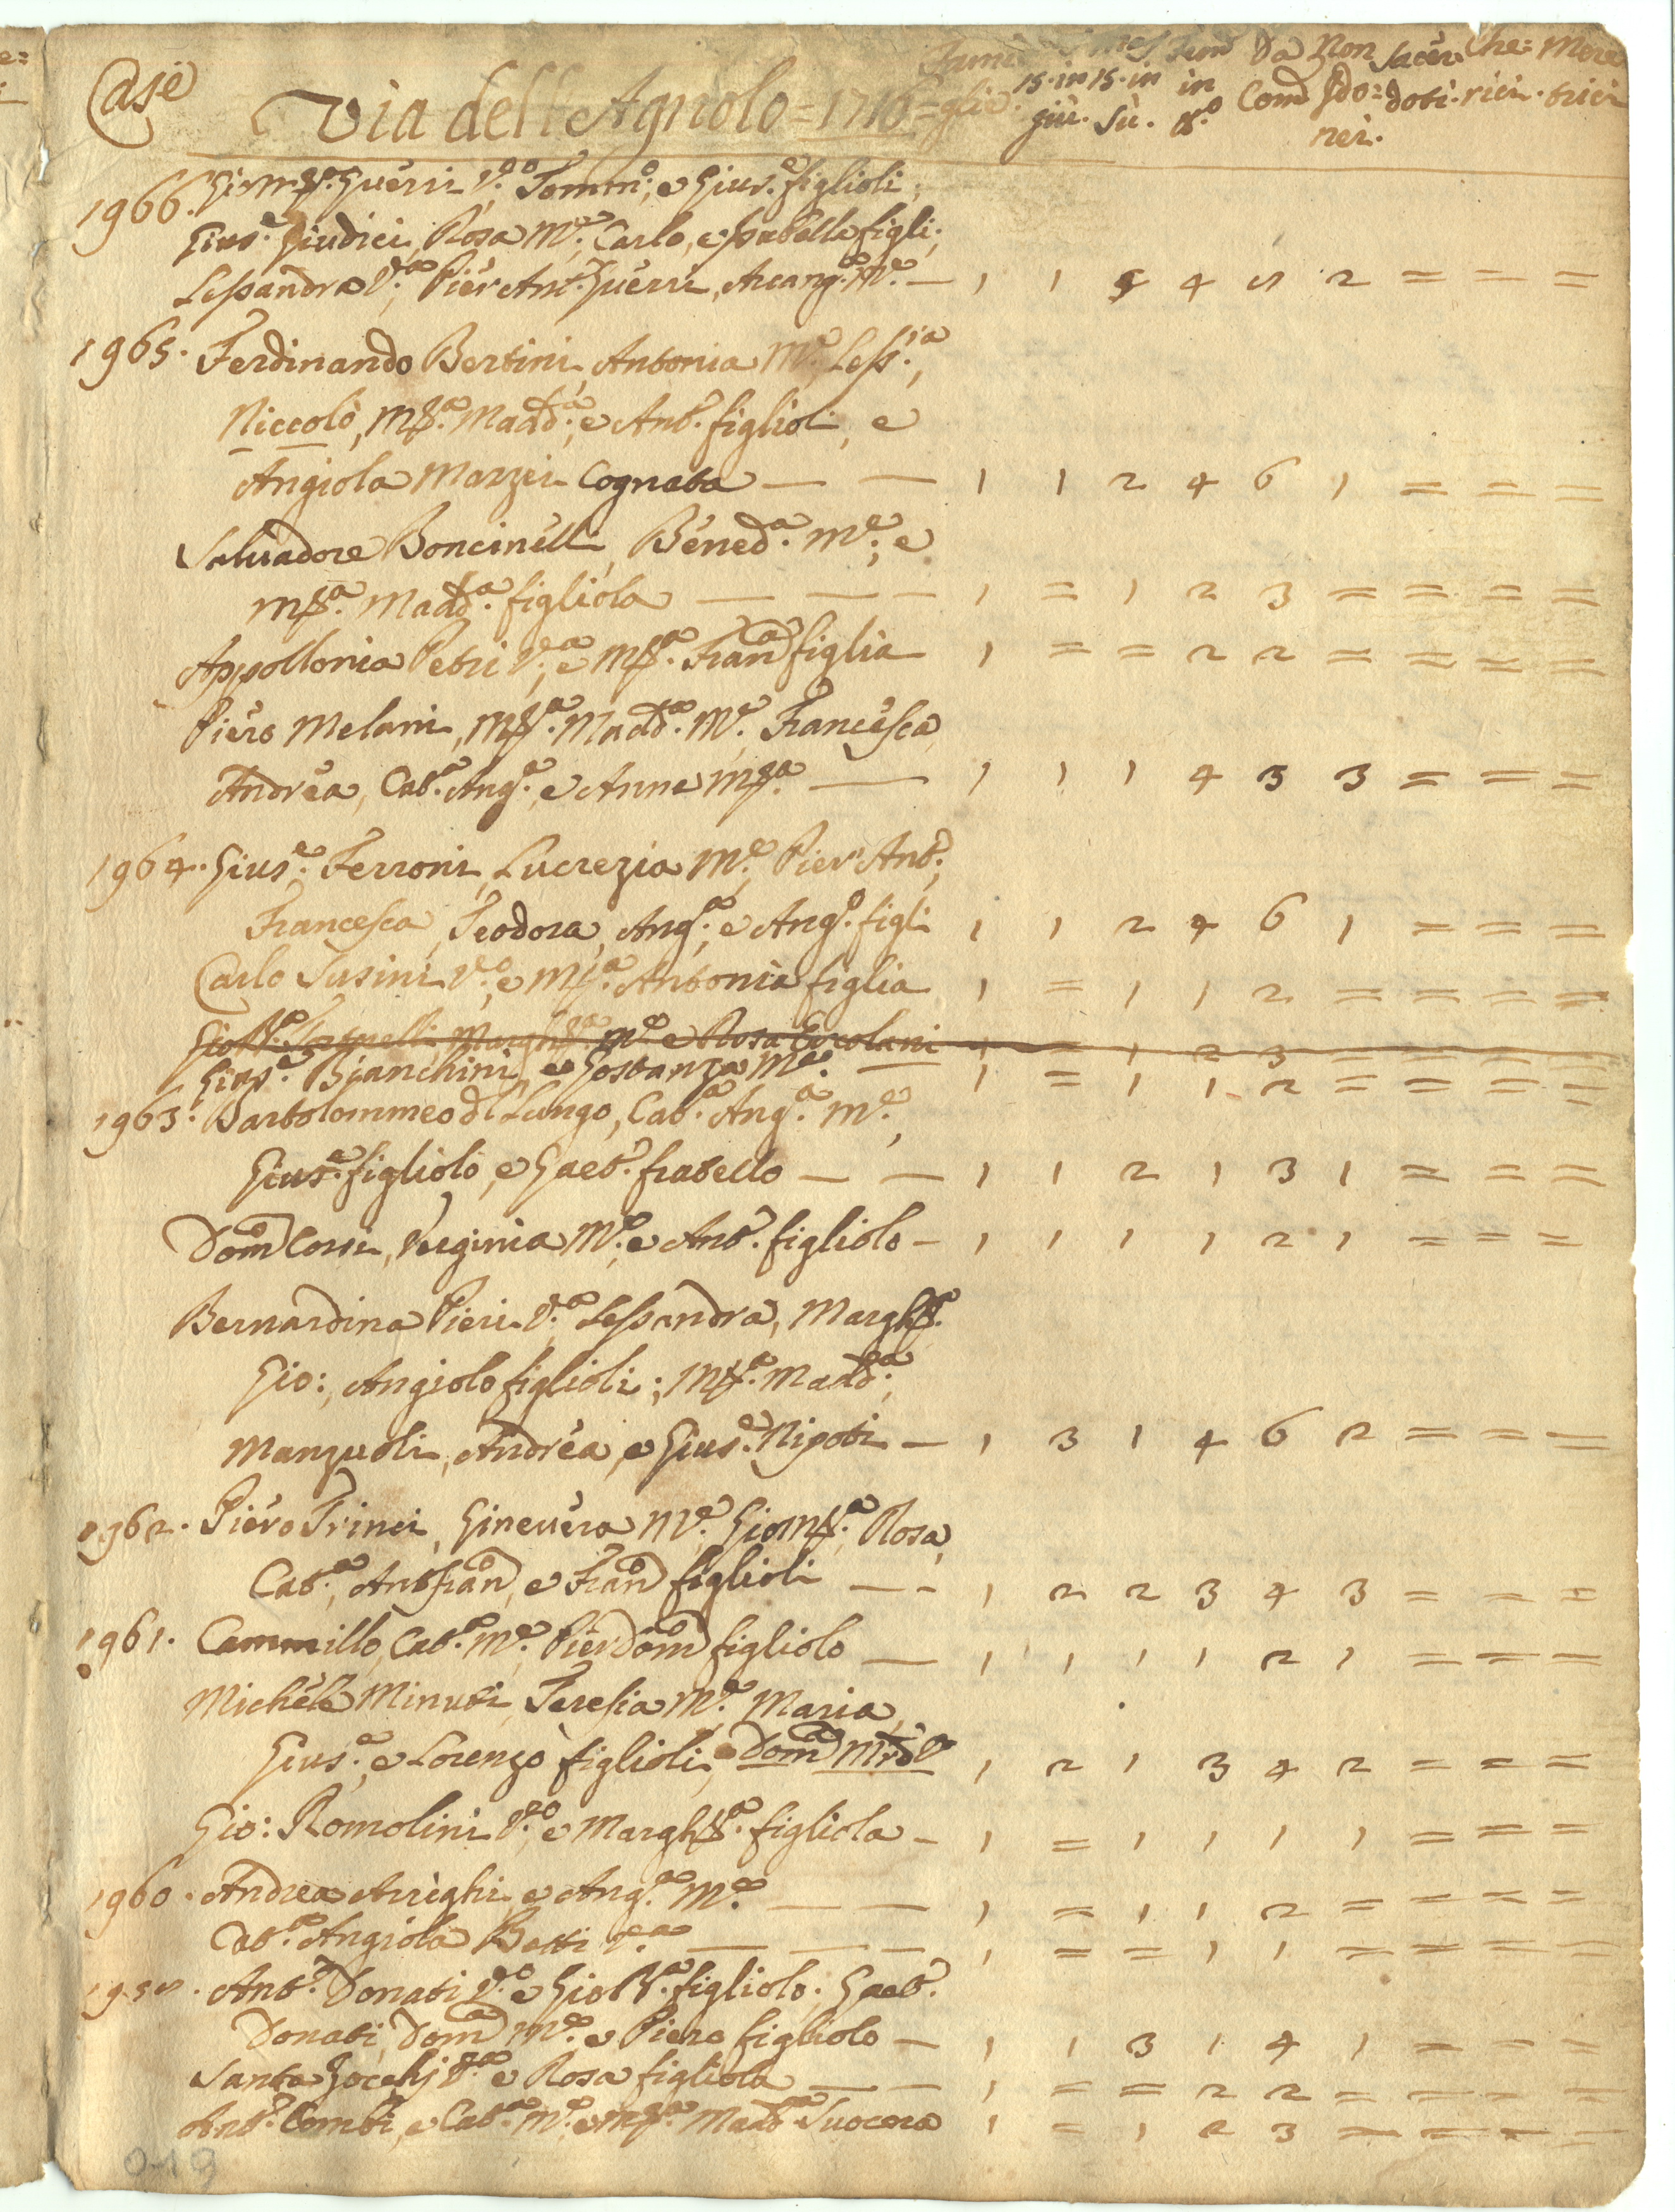 Case Via dell'Agnolo = 1716 =
Fami= glie. 15. in giù. 15. in sù. Fem in t.o Da Com Non Idonei. Sacerdoti. Cherici. Meretrici
1966. Giom.a Guerri V.o, Tomm.o, e Gius.e figlioli;
Gius.e Giudici, Rosa M.e, Carlo, e Isabella figli;
Lessandra V.a, Pier Ant.o Guerri, Arcang.a M.e — 1 1 4 2 = = =
1965. Ferdinando Bertini, Antonia M.e, Less.a,
Niccolò, M.a Madd.a, e Ant.o figlioli, e
Angiola Marzii Cognata — — 1 1 2 4 6 1 = = =
Salvadore Boncinelli, Bened.a M.e, e
M.a Madd.a figliola — — — 1 = 1 2 3 = = = =
Appollonia Petri V.a, e M.a Fran.a figlia 1 = = 2 2 = = = =
Piero Melani, M.a Madd.a M.e, Francesca,
Andrea, Cat.a Ang.a, e Anna M.a — 1 1 1 4 3 3 = = =
1964. Gius.e Ferroni, Lucrezia M.e, Pier Ant.o,
Francesca, Teodora, Ang.a, e Ang.o figli 1 1 2 4 6 1 = = =
Carlo Susini V.o, e M.a Antonia figlia 1 = 1 1 2 = = = =
Gio B.a Margh.a M.e e Rosa Ercolani 1 = 1 2 3 = = = =
Gius.e Bianchini, e Gostanza M.e — 1 = 1 1 2 = = = =
1963. Bartolommeo d Lungo, Cat.a Ang.a M.e,
Gius.e figliolo, e Gaet.o fratello — — 1 1 2 1 3 1 = = =
Dom.o Corsi, Verginia M.e, e Ant.o figliolo — 1 1 1 1 2 1 = = =
Bernardina Pieri V.a, Lessandra, Margh.a
Gio:, Angiolo figlioli; M.a Madd.a,
Manzuoli, Andrea, e Gius.e Nipoti — 1 3 1 4 6 2 = = =
1962. Piero Trinci, Ginevera M.e, Giom.a, Rosa,
Cat.a, Ant.o Fran.o, e Fran.o figlioli — — 1 2 2 3 4 3 = = =
1961. Cammillo, Cat.a M.e, Pier Dom.o figliolo — 1 1 1 1 2 1 = = =
Michele Minuti, Teresia M.e, Maria,
Gius.e, e Lorenzo figlioli, Dom.a M.re V.a 1 2 1 3 4 2 = = =
Gio: Romolini V.o, e Margh.a figliola — 1 = 1 1 1 1 = = =
1960. Andrea Arrighi, e Ang.a M.e — — 1 = 1 1 2 = = = =
Cat.a Angiola Batti V.a — — — 1 = = 1 1 = = = =
Ant.o Donati V.o e Gio B.a figliolo. Gaet.o
Donati, Dom.a M.e e Piero figliolo — 1 1 3 1 4 1 = = =
Santa V.a e Rosa figliola — — 1 = = 2 2 = = = =
Ant.o Comti, e Cat.a M.e e M.a Madd.a Suocera 1 = 1 2 3 = = = =
019